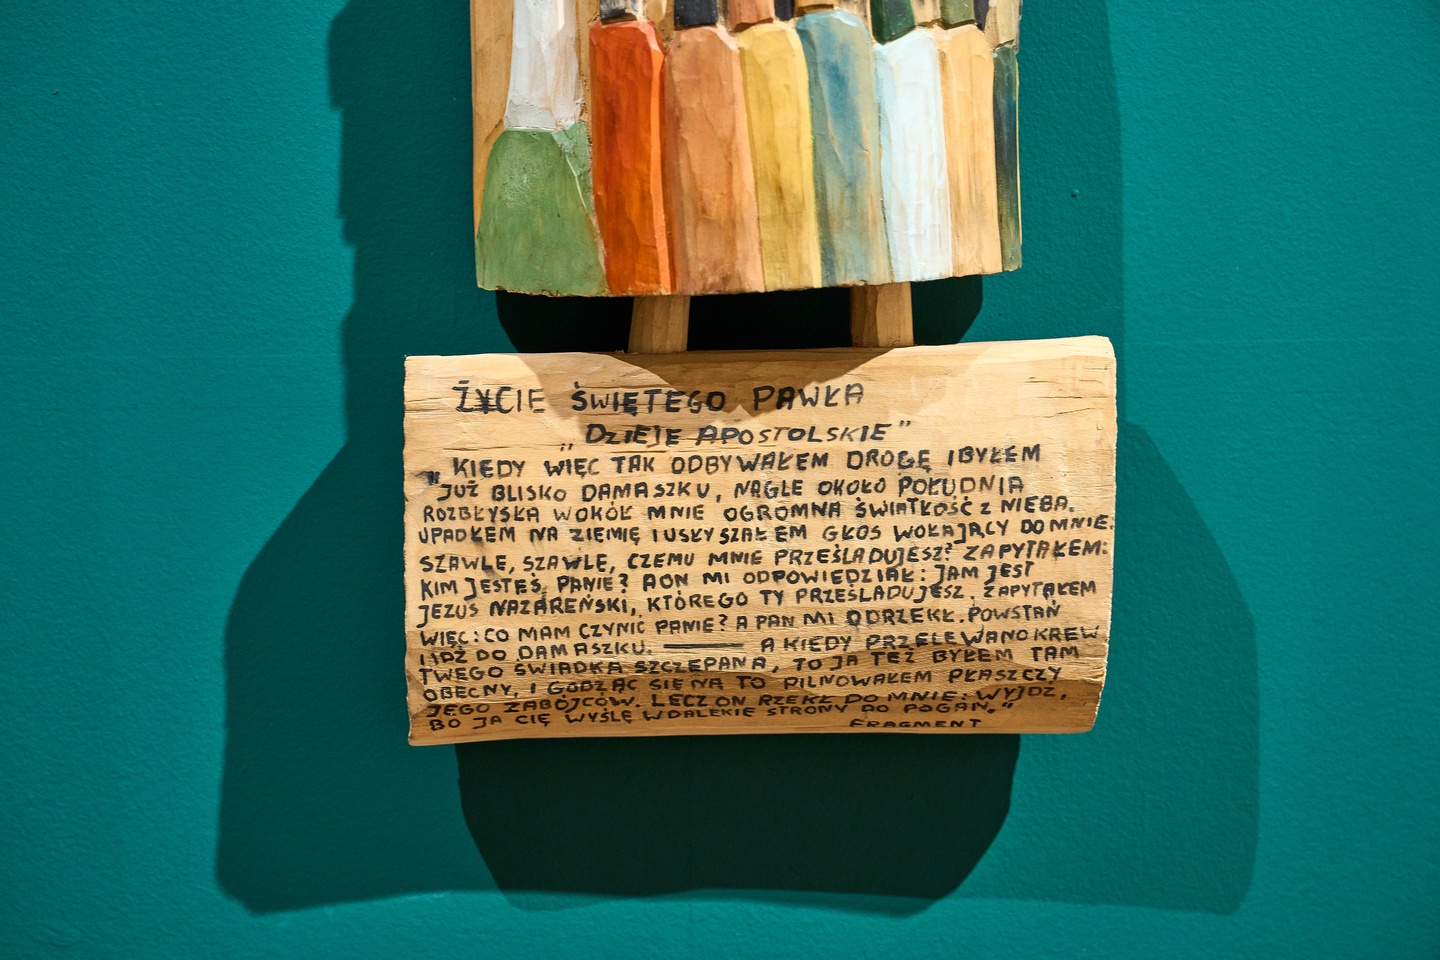 ŻYCIE ŚWIĘTEGO PAWŁA
„DZIEJE APOSTOLSKIE”
„KIEDY WIĘC TAK ODBYWAŁEM DROGĘ I BYŁEM
JUŻ BLISKO DAMASZKU, NAGLE OKOŁO POŁUDNIA
ROZBŁYSŁA WOKÓŁ MNIE OGROMNA ŚWIATŁOŚĆ Z NIEBA.
UPADŁEM NA ZIEMIĘ I USŁYSZAŁEM GŁOS WOŁAJĄCY DO MNIE:
SZAWLE, SZAWLE, CZEMU MNIE PRZEŚLADUJESZ? ZAPYTAŁEM:
KIM JESTEŚ, PANIE? A ON MI ODPOWIEDZIAŁ: JAM JEST
JEZUS NAZAREŃSKI, KTÓREGO TY PRZEŚLADUJESZ. ZAPYTAŁEM
WIĘC: CO MAM CZYNIĆ PANIE? A PAN MI ODRZEKŁ. POWSTAŃ
I IDŹ DO DAMASZKU. — A KIEDY PRZELEWANO KREW
TWEGO ŚWIADKA SZCZEPANA, TO JA TEŻ BYŁEM TAM
OBECNY, I GODZĄC SIĘ NA TO PILNOWAŁEM PŁASZCZY
JEGO ZABÓJCÓW. LECZ ON RZEKŁ DO MNIE: WYJDŹ,
BO JA CIĘ WYŚLĘ W DALEKIE STRONY DO POGAN."
FRAGMENT